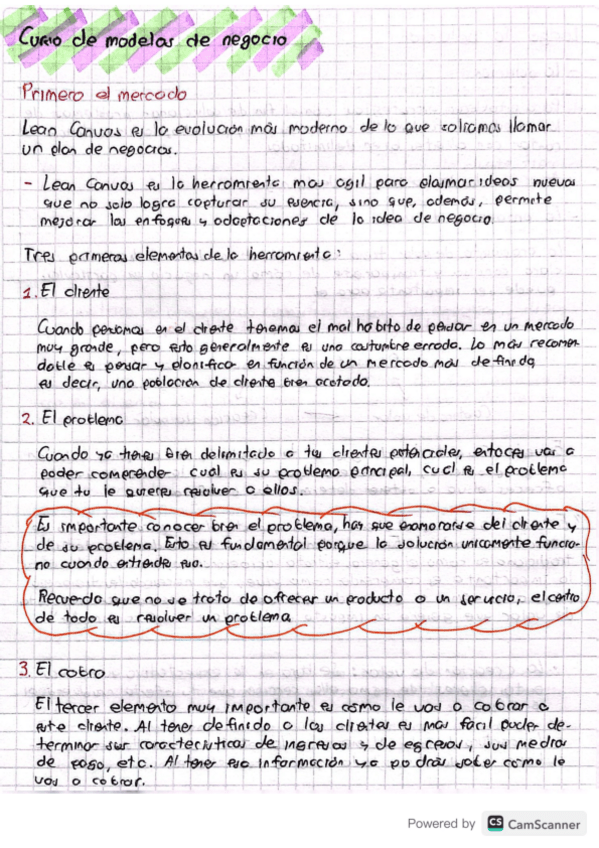 Curso de modelos de negocio
Primero el mercado
Lean Canvas es la evolución más moderna de lo que solíamos llamar
un plan de negocios.
- Lean Canvas es la herramienta mas agil para plasmar ideas nuevas
que no solo logra capturar su esencia, sino que, además, permite
mejorar los enfoques y adaptaciones de la idea de negocio.
Tres primeros elementos de la herramienta:
1. El cliente
Cuando pensamos en el cliente tenemos el mal hábito de pensar en un mercado
muy grande, pero esto generalmente es una costumbre errada. Lo más recomen-
dable es pensar y planificar en función de un mercado más definido,
es decir, una población de cliente bien acotada.
2. El problema
Cuando ya tienes bien delimitado a tus clientes potenciales, entonces vas a
poder comprender cual es su problema principal, cual es el problema
que tu le quieres resolver a ellos.
Es importante conocer bien el problema, hay que enamorarse del cliente y
de su problema. Esto es fundamental porque la solución unicamente funcio-
na cuando entiende eso.
Recuerda que no se trata de ofrecer un producto o un servicio, el centro
de todo es resolver un problema
3. El cobro
El tercer elemento muy importante es cómo le vas a cobrar a
este cliente. Al tener definido a los clientes es mas fácil poder de-
terminar sus características de ingresos y de egresos, sus medios
de pago, etc. Al tener esa información ya podrás saber cómo le
vas a cobrar.
Powered by CS CamScanner